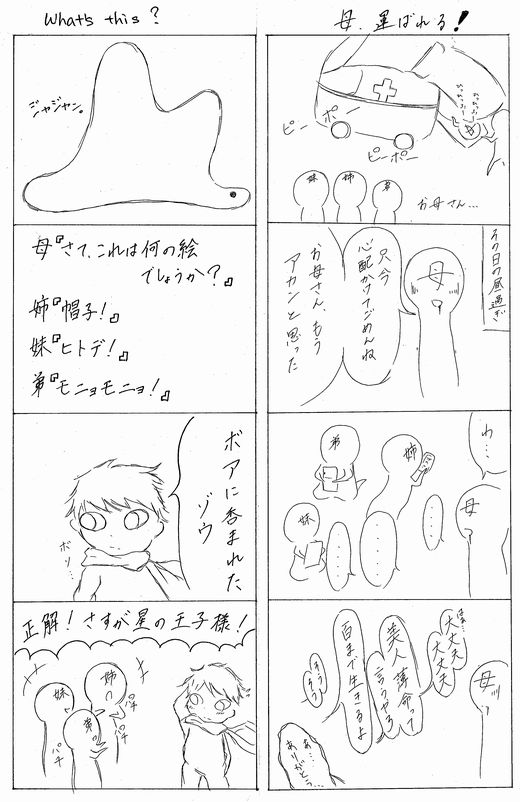 母、運ばれる!
ピーポー
ピーポー
妹
姉
弟
お母さん…
その日の昼過ぎ
母
只今
心配かけてごめんね
お母さん、もう
アカンと思った
わ…
母
弟
姉
妹
……
……
……
母
大丈夫
大丈夫
美人薄命って
言うやろ
百まで生きるよ
そうそう
あ…
ありがとう…
What's this?
ジャジャン。
母『さて、これは何の絵
でしょうか?』
姉『帽子!』
妹『ヒトデ!』
弟『モニョモニョ!』
ボアに呑まれた
ゾウ
ボソ…
正解!さすが星の王子様!
妹
姉
弟
パチ
パチ
パチ